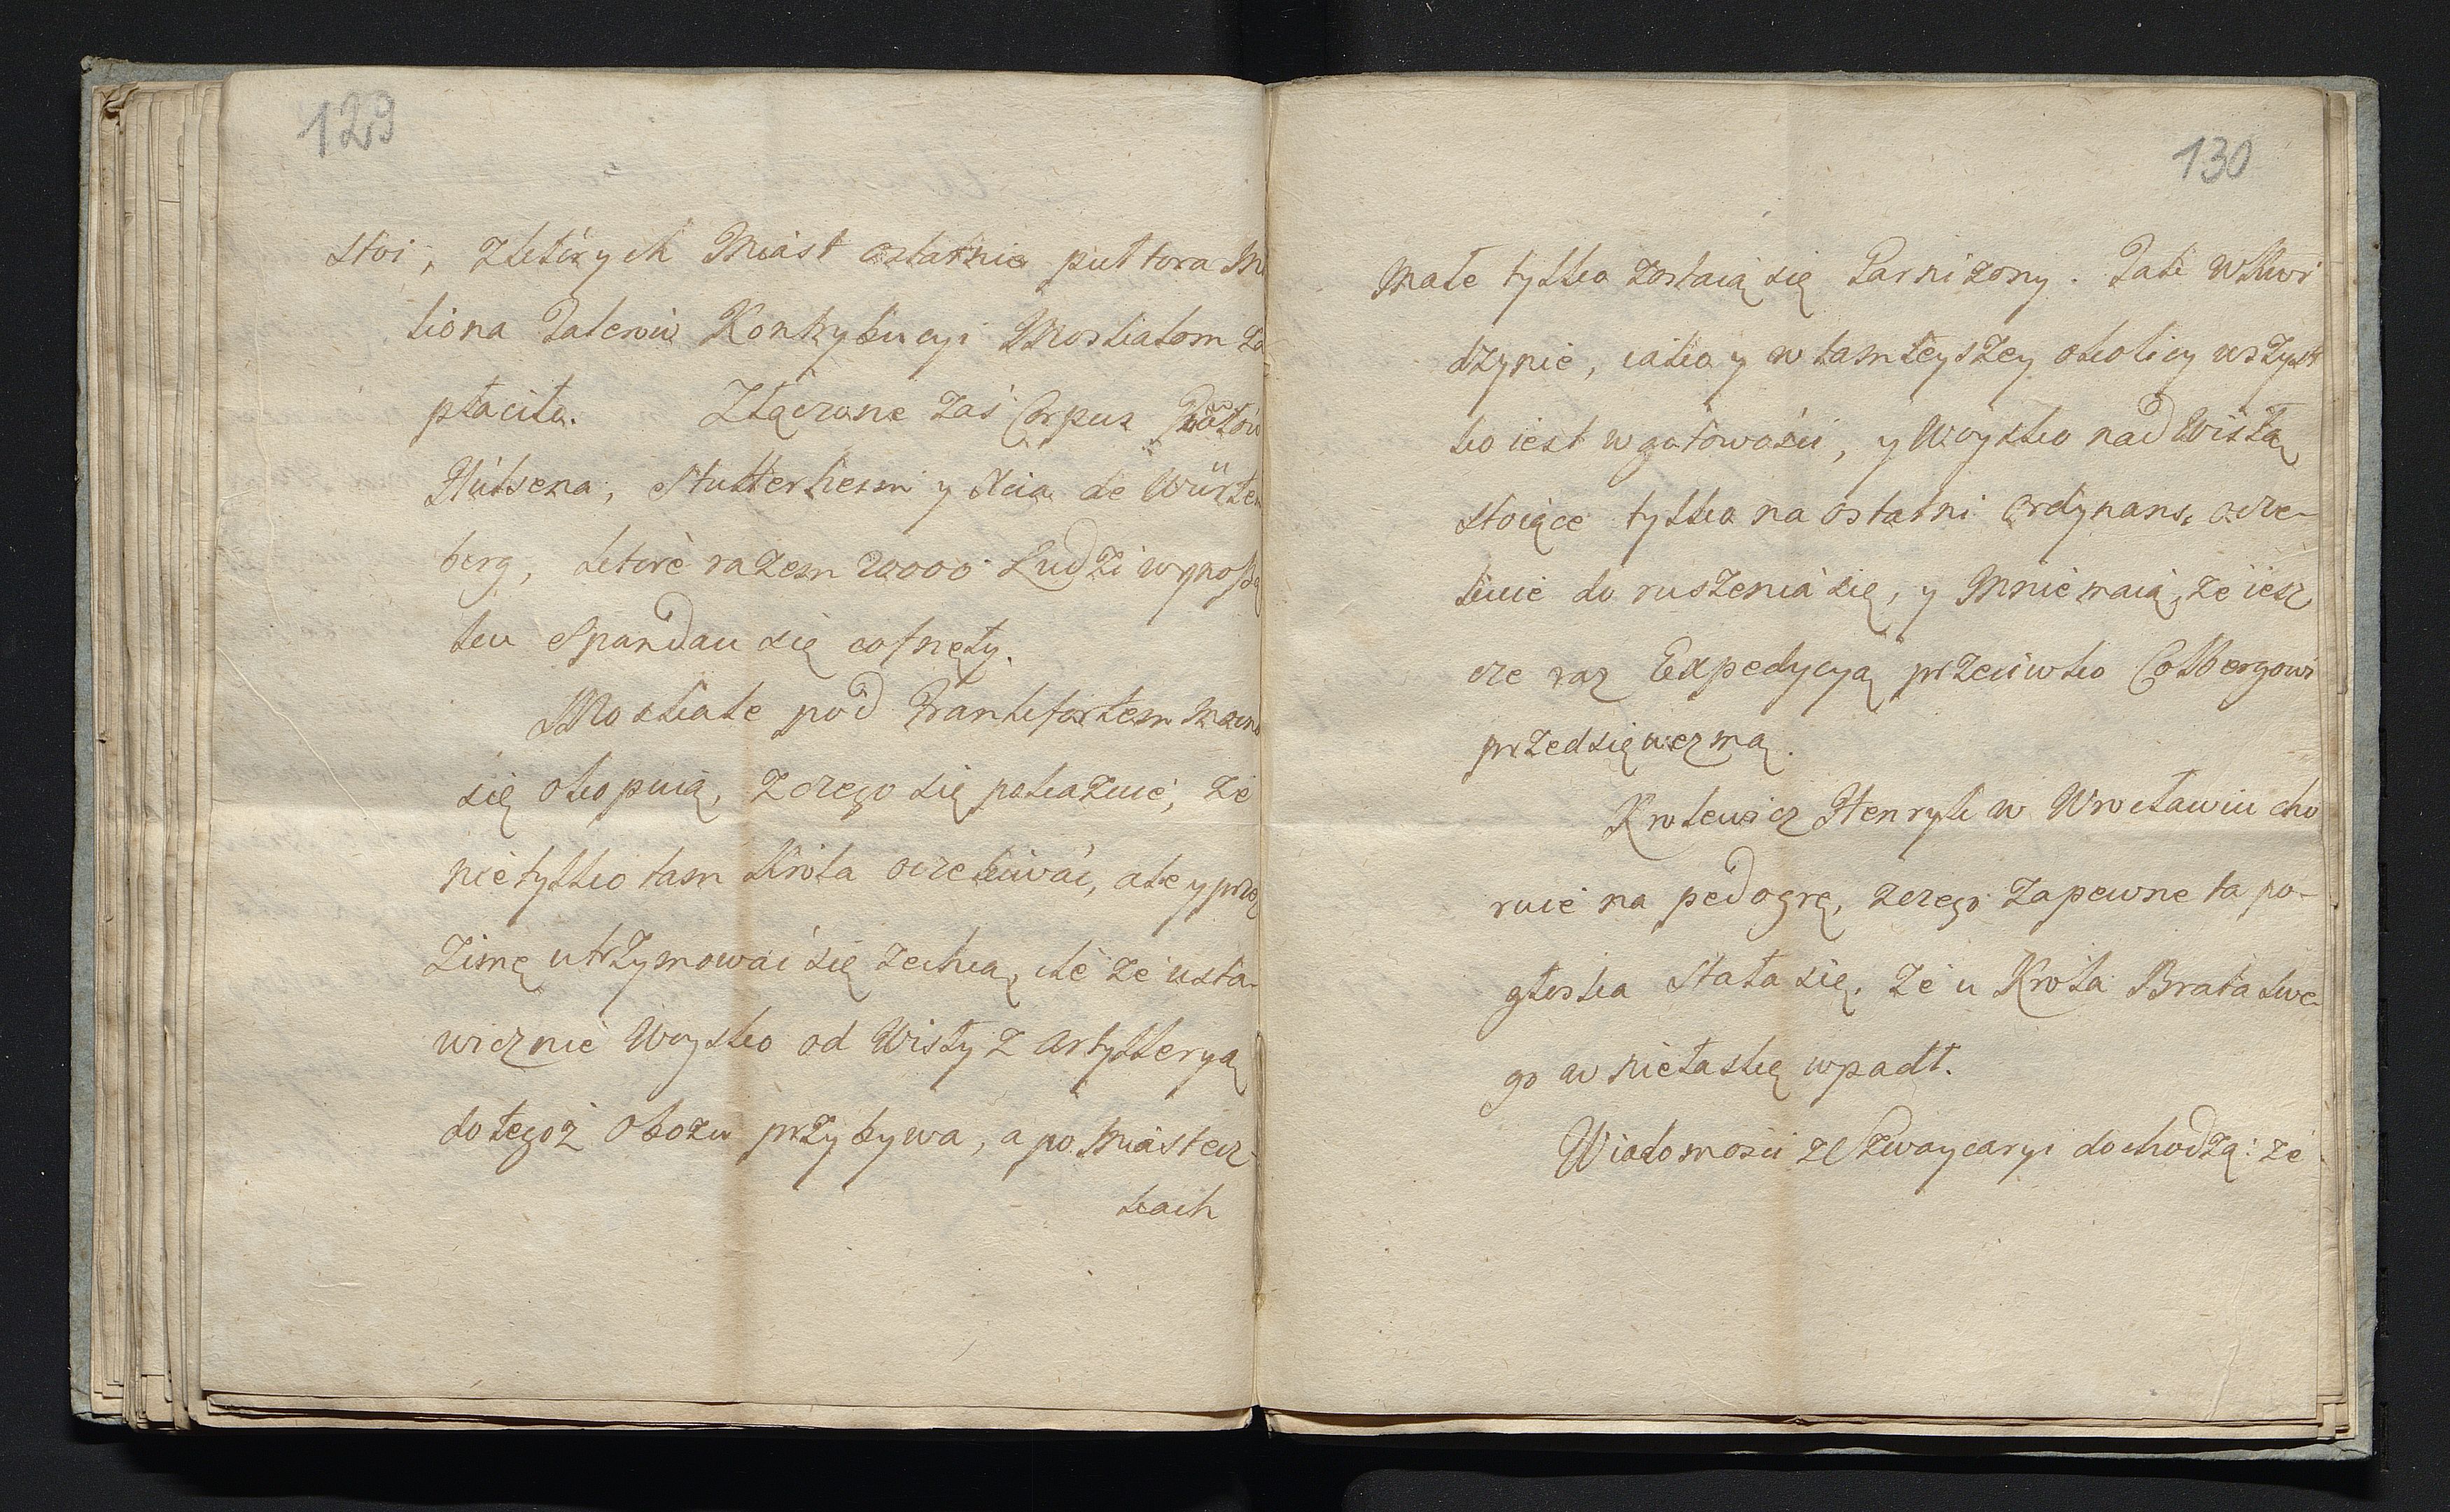 129
stoi, z których Miast ostatnie pułtora Mi
liona Talerow Kontrybucyi Moskalom za
płaciło. Złączone zaś Corpus
Hülsena, Stutterheim y Xcia de Würtem
berg, które razem 20000 Ludzi wynoszą
ku Spandau się cofnęły.
Moskale pod Frankfortem mocno
się okopuią, z czego się pokazuie, że
nie tylko tam Króla oczekiwać, ale y przez
Zimę utrzymować się zechcą, ile że usta-
wicznie Woysko od Wisły z Artylleryą
do tegoż Obozu przybywa, a po Miastecz-
kach
130
Małe tylko zostaią się Garnizony. Tak w Kwi
dzynie, iako y w tamteyszey okolicy wszyst
ko iest w gotowości, y Woysko nad Wisłą
stoiące tylko na ostatni ordynans ocze-
kuie do ruszenia się, y Mniemaią, że iesz
cze raz Expedycyą przeciwko Colbergowi
przedsięwezmą.
Krolewicz Henryk w Wrocławiu cho
ruie na pedogrę, z czego zapewne ta po-
głoska stała się, że u Krola Brata swe-
go w niełaskę wpadł.
Wiadomości z Szwaycaryi dochodzą: że